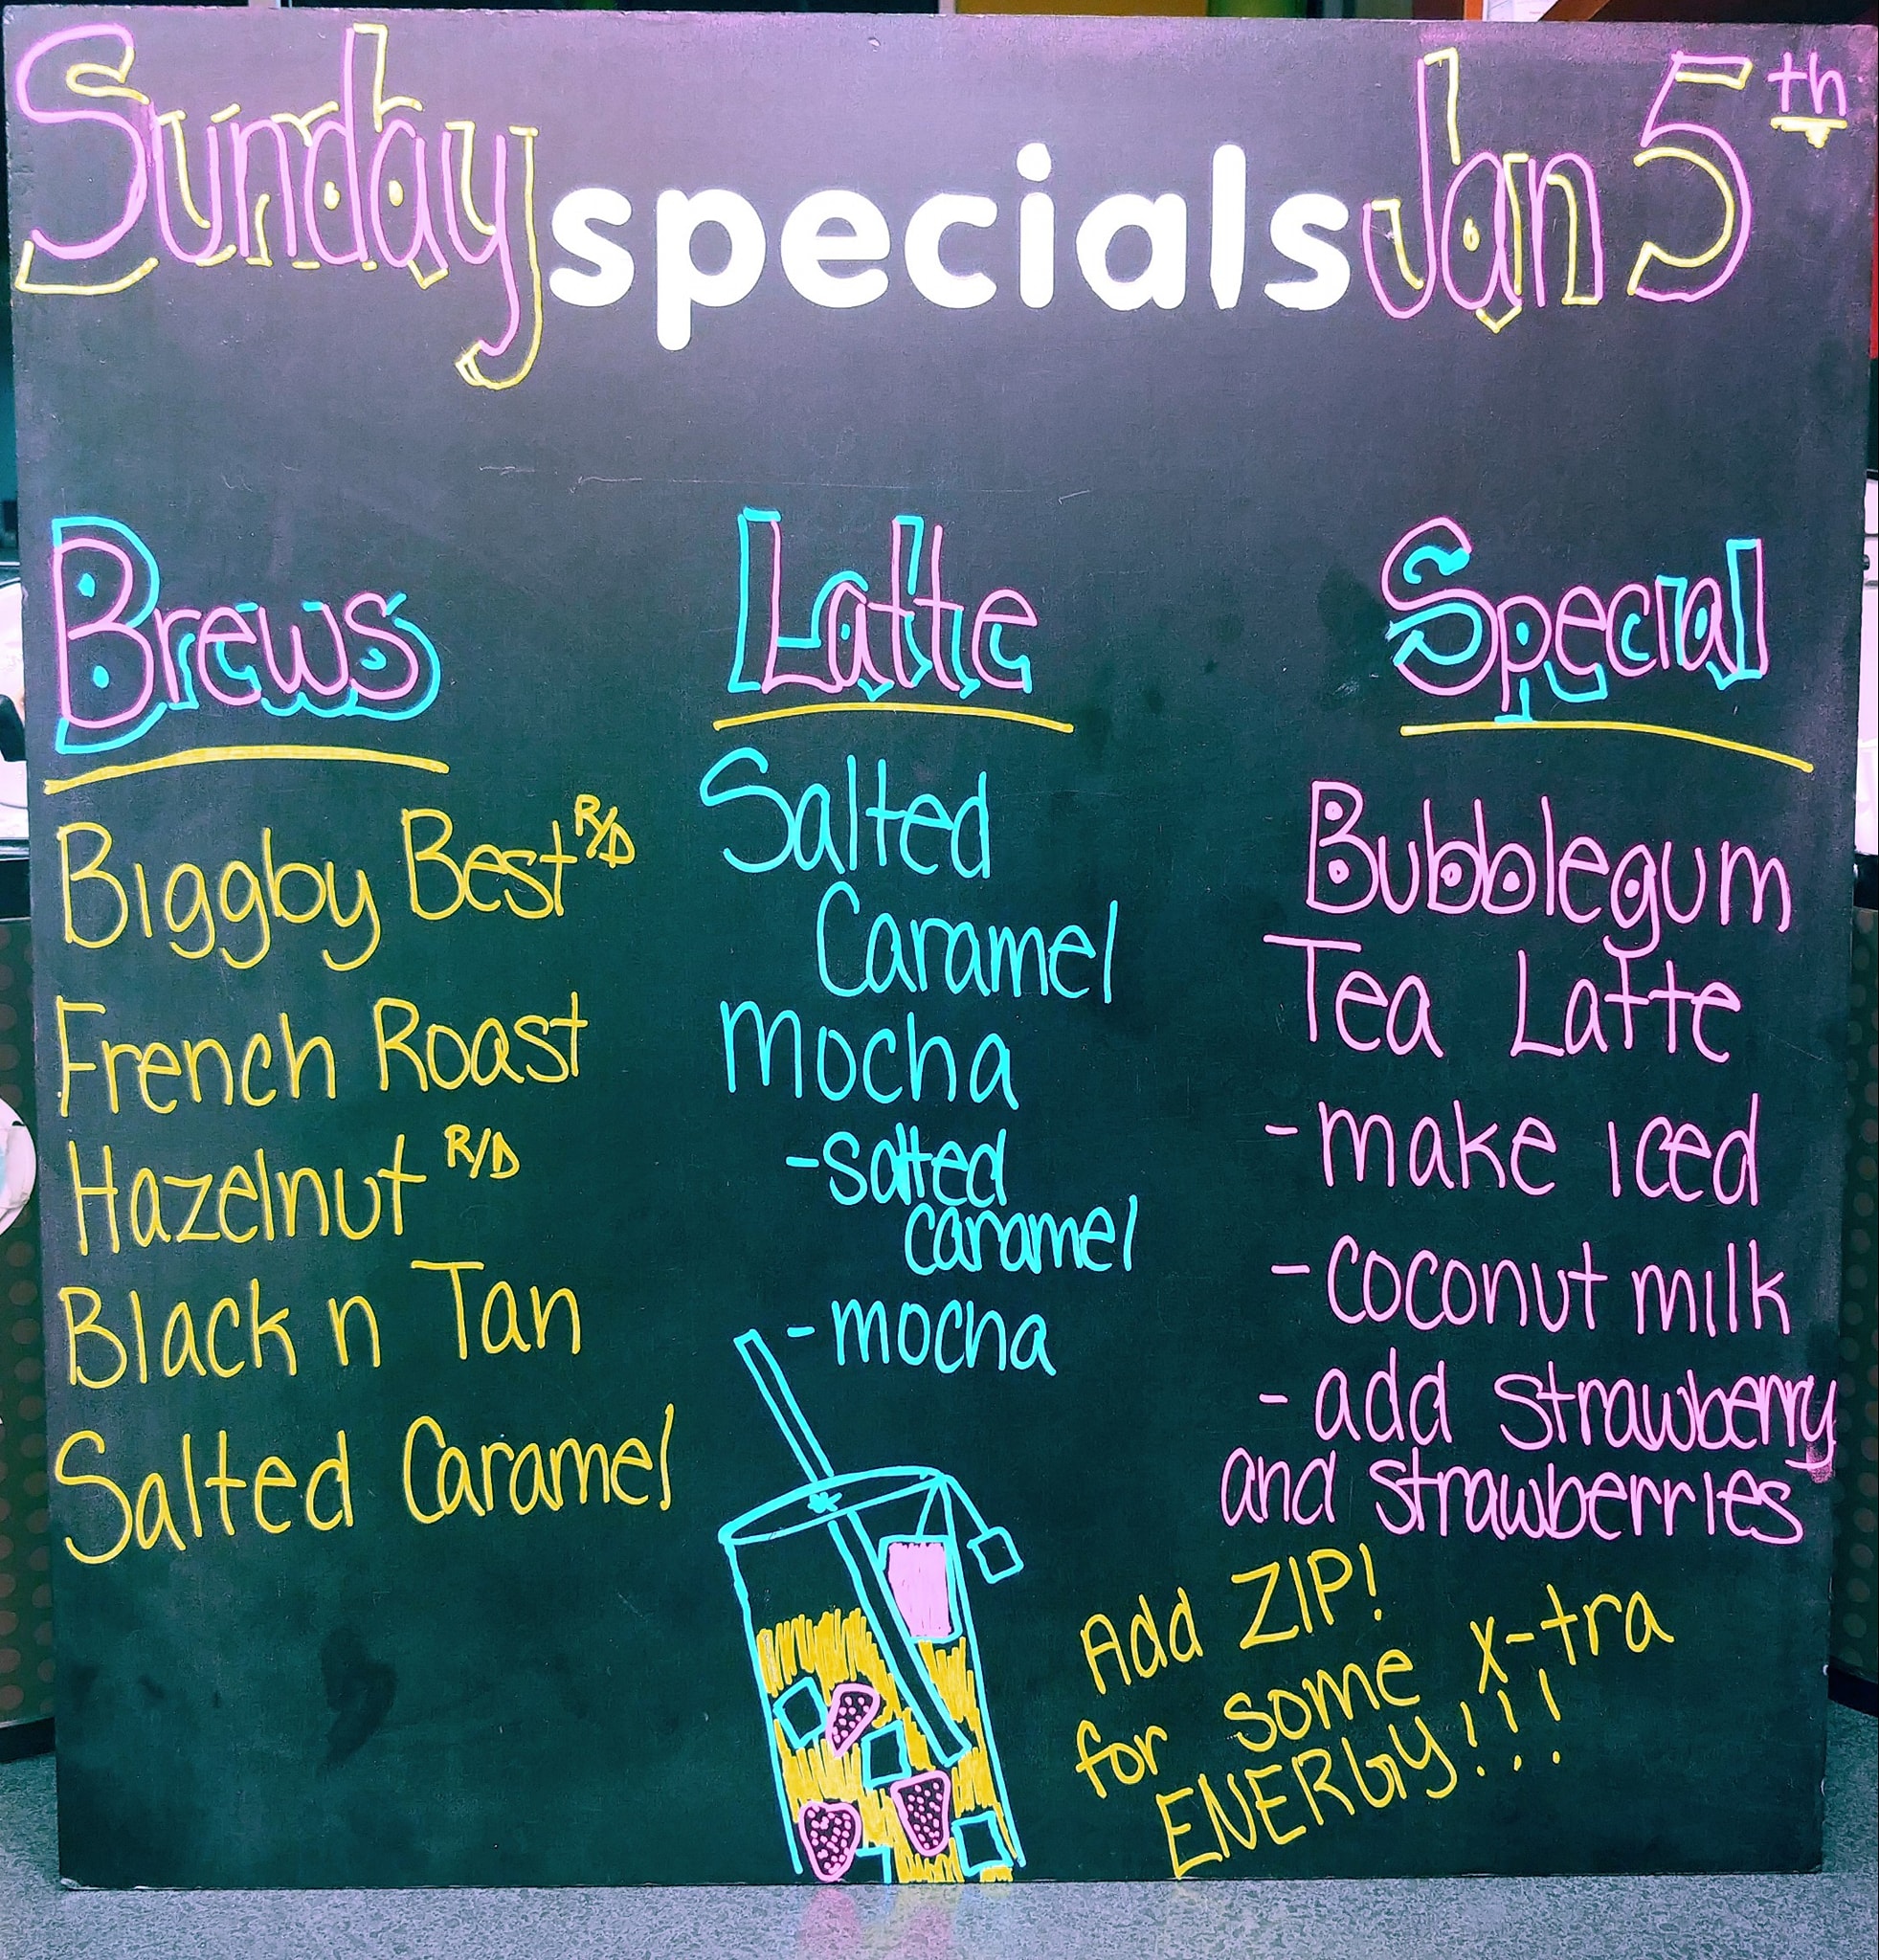 Sunday specials Jan 5th
Brews
Biggby Best R/D
French Roast
Hazelnut R/D
Black n Tan
Salted Caramel
Latte
Salted
Caramel
Mocha
-salted
caramel
-mocha
Special
Bubblegum
Tea Latte
- make iced
- coconut milk
- add strawberry
and strawberries
Add ZIP!
for some x-tra
ENERGY!!!